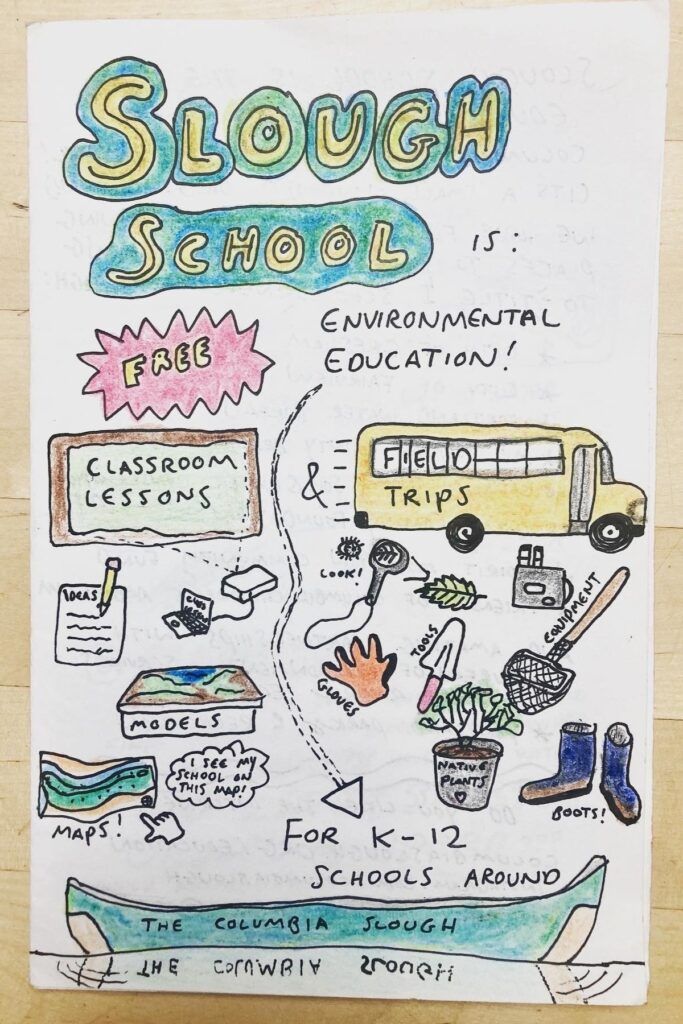 SLOUGH
SCHOOL IS:
FREE
ENVIRONMENTAL
EDUCATION!
CLASSROOM
LESSONS
&
FIELD
TRIPS
IDEAS
LOOK!
EQUIPMENT
TOOLS
GLOVES
MODELS
NATIVE
PLANTS
BOOTS!
I SEE MY
SCHOOL ON
THIS MAP!
MAPS!
FOR K-12
SCHOOLS AROUND
THE COLUMBIA SLOUGH
THE COLUMBIA SLOUGH